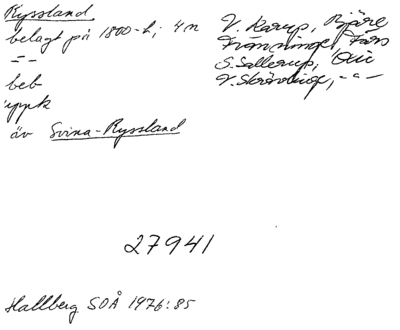 Ryssland
belagt på 1800-t; 4 n
V. Karup, Bjäre
- " -
Tranninge, Färs
S. Sallerup,
beb
V. Skrävlinge, - " -
uppk
äv Svina-Ryssland
27941
Hallberg SOÅ 1976:85